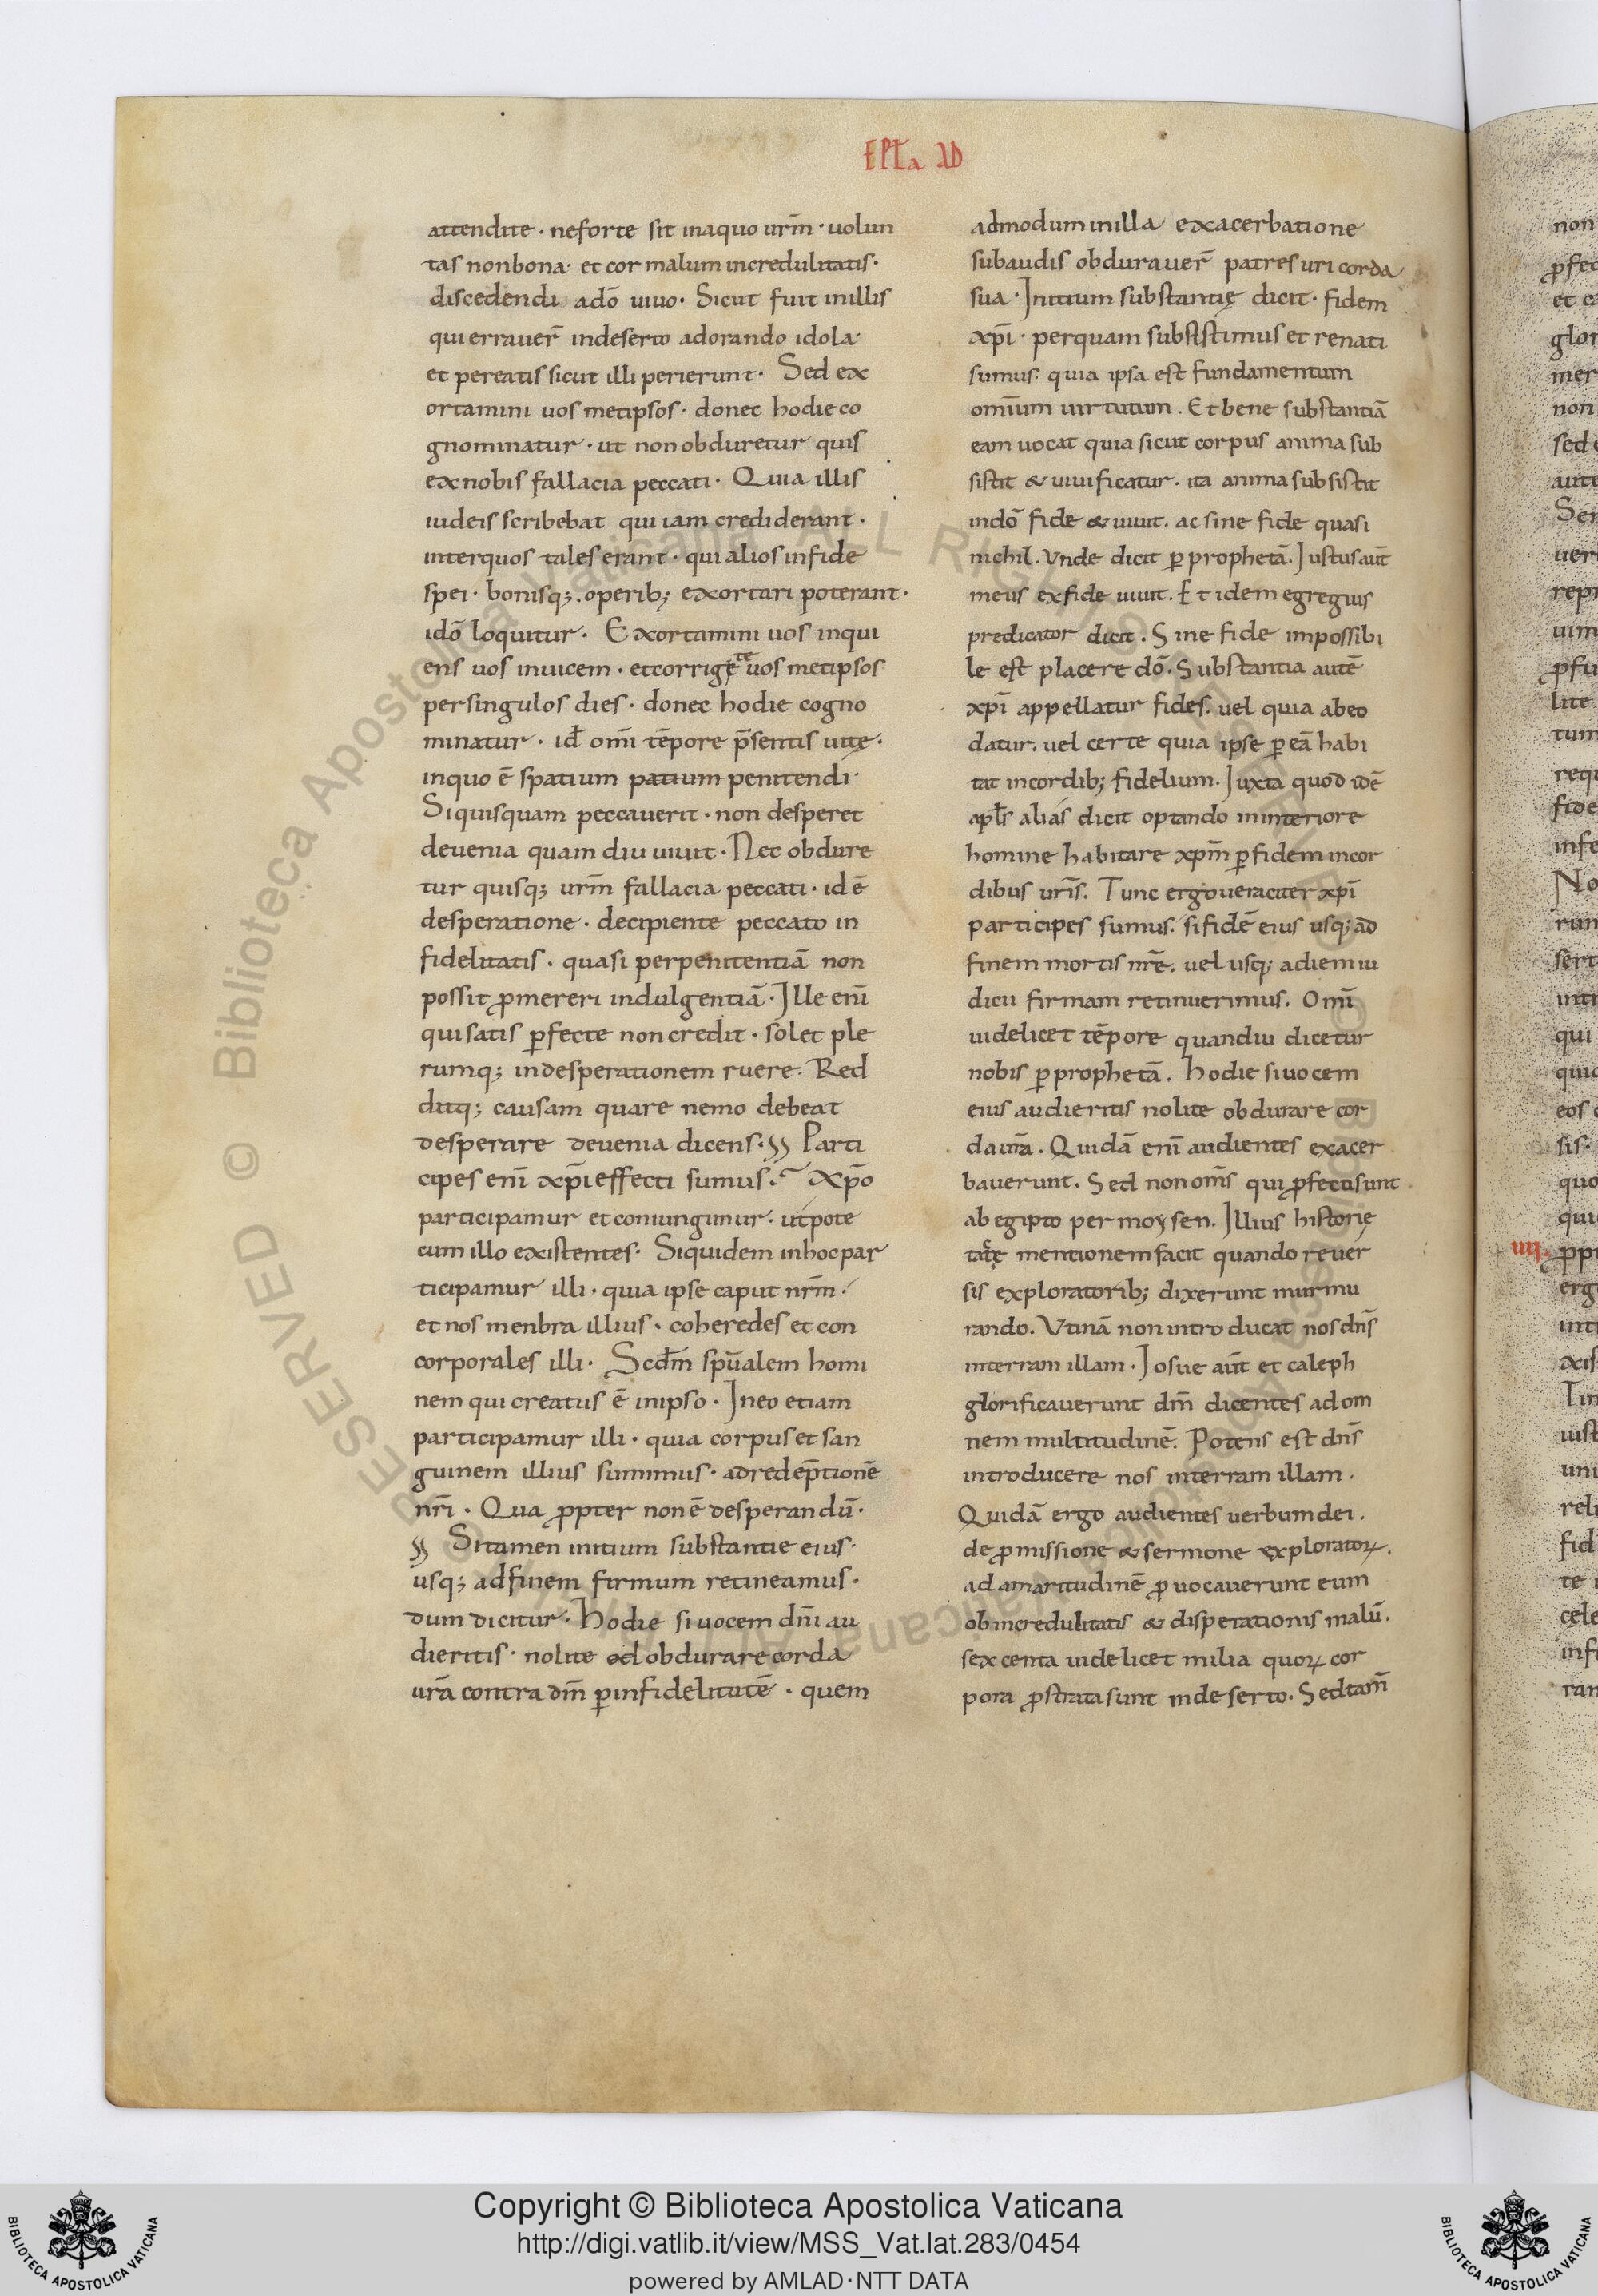 EPLa AD
attendite · neforte sit inaquo urm̄ · uolun
tas nonbona · et cor malum incredulitatis ·
discedendi adō uiuo · Sicut fuit inillis
qui errauer̄ indeserto adorando idola ·
et pereatis sicut illi perierunt · Sed ex
ortamini uos metipsos · donec hodie co
gnominatur · ut non obduretur quis
exnobis fallacia peccati · Quia illis
iudeis scribebat qui iam crediderant ·
interquos tales erant · qui alios infide
spei · bonisq; operib; exortari poterant ·
idō loquitur · Exortamini uos inqui
ens uos inuicem · etcorrigite uos metipsos
persingulos dies · donec hodie cogno
minatur · id̄ omī tēpore p̄sentis uitę ·
inquo ē spatium patium penitendi ·
Siquisquam peccauerit · non desperet
deuenia quam diu uiuit · Nec obdure
tur quisq; urm̄ fallacia peccati · id ē
desperatione · decipiente peccato in
fidelitatis · quasi perpenitentiā non
possit ꝓmereri indulgentiā · Ille enī
qui satis ꝑfecte noncredit · solet ple
rumq; indesperationem ruere · Red
ditq; causam quare nemo debeat
desperare deuenia dicens · Parti
cipes enī xp̄i effecti sumus · xp̄o
participamur et coniungimur · utpote
cum illo existentes · Siquidem inhoc par
ticipamur illi · quia ipse caput nrm̄ ·
et nos menbra illius · coheredes et con
corporales illi · Scdm̄ spūalem homi
nem qui creatus ē inipso · Ineo etiam
participamur illi · quia corpus et san
guinem illius sumimus · adredēptionē
nr̄i · Qua ꝓpter non ē desperandū ·
Sitamen initium substantie eius ·
usq; adfinem firmum retineamus ·
dum dicitur · Hodie si uocem dn̄i au
dieritis · nolite od obdurare corda
ur̄a contra dm̄ ꝑinfidelitatē · quem
admodum inilla exacerbatione
subaudis obdurauer̄ patres uri corda
sua · Initium substantię dicit · fidem
xp̄i · perquam subsistimus et renati
sumus · quia ipsa est fundamentum
omīum uirtutum . Et bene substantiā
eam uocat quia sicut corpus anima sub
sistit & uiuificatur . ita anima subsistit
indō fide & uiuit . ac sine fide quasi
nichil . Vnde dicit ꝑ prophetā . Iustus aut̄
meus exfide uiuit . Et idem egregius
predicator dicit . Sine fide impossibi
le est placere dō . Substantia autē
xp̄i appellatur fides . uel quia abeo
datur . uel certe quia ipse ꝑ eā habi
tat incordib; fidelium . Iuxta quod idē
apl̄s alias dicit optando ininteriore
homine habitare xpm̄ ꝑ fidem incor
dibus ur̄is . Tunc ergo ueraciter xp̄i
participes sumus . si fidē eius usq; ad
finem mortis nr̄ē . uel usq; adiem iu
dicii firmam retinuerimus . Omī
uidelicet tēpore quandiu dicetur
nobis ꝑ prophetā . Hodie si uocem
eius audieritis nolite obdurare cor
da ur̄a . Quidā enī audientes exacer
bauerunt . Sed non oms̄ qui ꝓfecti sunt
ab egipto per moysen . Illius historię
mentionem facit quando reuer
sis exploratorib; dixerunt murmu
rando . Vtinā non introducat nos dn̄s
interram illam . Iosue aut̄ et caleph
glorificauerunt dm̄ dicentes ad om
nem multitudinē . Potens est dn̄s
introducere nos interram illam .
Quidā ergo audientes uerbum dei .
de ꝓmissione & sermone exploratoꝝ .
ad amaritudinē ꝓuocauerunt eum
ob incredulitatis & disperationis malū .
sexcenta uidelicet milia quoꝝ cor
pora ꝓstrata sunt indeserto . Sed tam̄
Copyright © Biblioteca Apostolica Vaticana
http://digi.vatlib.it/view/MSS_Vat.lat.283/0454
powered by AMLAD·NTT DATA